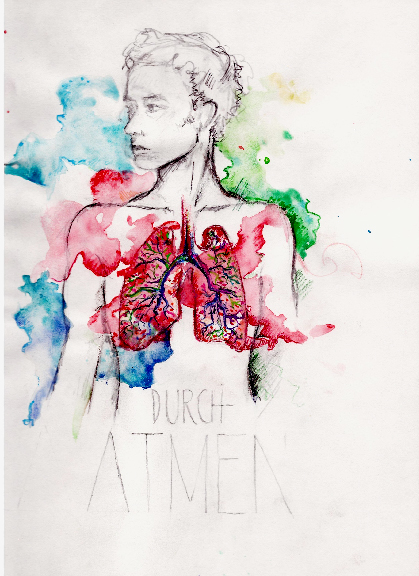 DURCH-
ATMEN